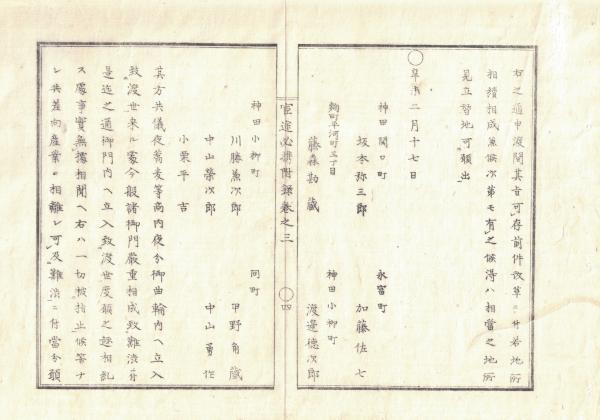 右之通申渡間其旨可存前件改革ニ付若地所
相續相成兼候次第モ有之候得ハ相當之地所
見立替地可願出
〇
皐未二月十七日
神田関口町
坂本弥三郎
永富町
加藤佐七
麹町平河町三丁目
藤森勘蔵
神田小柳町
渡邊徳次郎
官途必携附録巻之三
〇四
神田小柳町
川勝兼次郎
同町
甲野角蔵
中山榮次郎
中山勇作
小栗平吉
其方共儀夜蕎麦等商内夜分御曲輪内ヘ立入
致渡世来ル處今般諸御門嚴重相成致難渋付
是迄之通御門内ヘ立入致渡世度願之趣相乱
ス處事實無據相聞ヘ右ハ一切被指止候筈ナ
レ共差向産業ニ相離レ可及難渋ニ付當分願